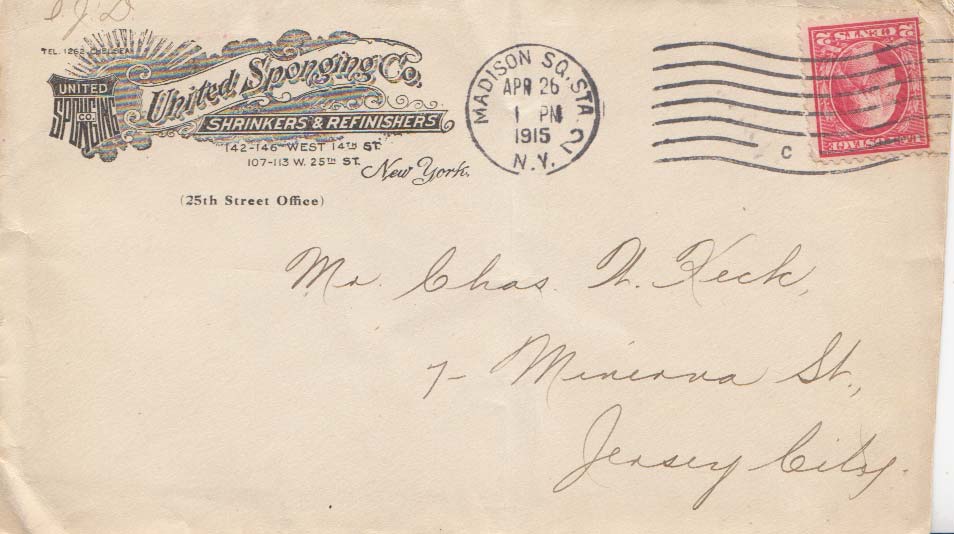 I.J.D.
TEL. 1262 CHELSEA
UNITED
SPONGING
CO.
United Sponging Co.
SHRINKERS & REFINISHERS
142-146 WEST 14TH ST.
107-113 W. 25TH ST.
New York.
(25th Street Office)
MADISON SQ. STA.
APR 26
1 PM
1915
N.Y.
2
C
2 CENTS 2
U.S. POSTAGE
Mr. Chas. W. Keck,
7- Minerva St.,
Jersey City.